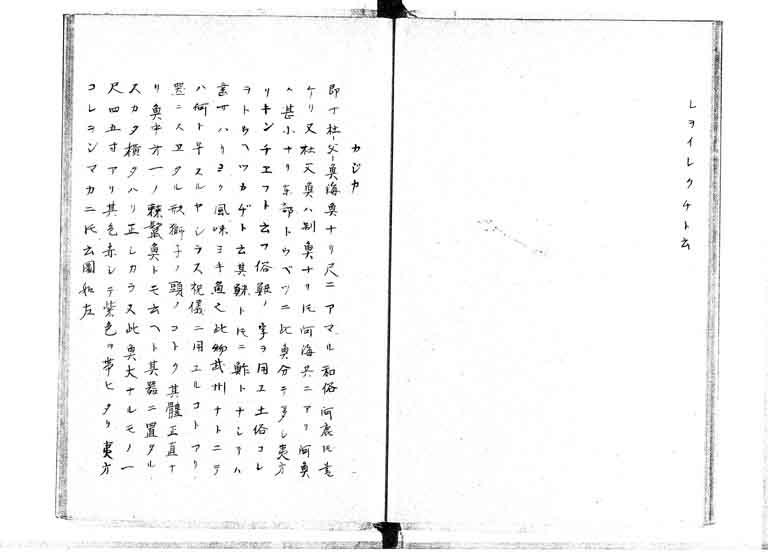 レヲイレクチト云
カジカ
即チ杜父魚海魚ナリ尺ニアマル和俗河鹿氏書
ケリ又杜父魚ハ別魚ナリ氏河海共ニアリ河魚
ハ甚小ナリ東部トウベツニ此魚分テ多シ夷方
リキンチエフト云フ俗鰍ノ字ヲ用エ土俗コレ
ヲトウヘツカヂト云其鰍ト氏ニ鮓トナシテハ
言サハリヨク風味ヨキ魚也此物武州ナトニテ
ハ何ト早スルヤシラス祝儀ニ用エルコトアリ
器ニスヱタル形獅子ノ頭ノコトク其體正直ナ
リ魚中方一ノ棘鬣魚トモ云ヘト其器ニ置タル
スカタ横タハリ正シカラス此魚大ナルモノ一
尺四五寸アリ其色赤シテ紫色ヲ帯ヒタリ夷方
コレヲンマカニ氏云圖如左